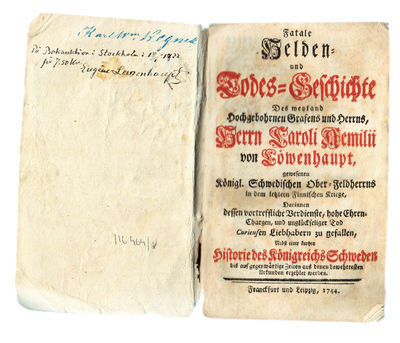 Karl Wm Bogman
På Bokauktion i Stockholm i 1922
för 7,50 Kr.
Eugène Lewenhaupt
116404/8
Fatale
Helden-
und
Todes=Geschichte
Des weyland
Hochgebohrnen Grafens und Herrns,
Herrn Caroli Aemilii
von Löwenhaupt,
gewesenen
Königl. Schwedischen Ober-Feldherrns
in dem letztern Finnischen Kriege,
Darinnen
dessen vortreffliche Verdienste, hohe Ehren-
Chargen, und unglückseliger Tod
Curieusen Liebhabern zu gefallen,
Nebst einer kurtzen
Historie des Königreichs Schweden
bis auf gegenwärtige Zeiten aus denen bewehrtesten
Urkunden erzehlet werden.
Franckfurt und Leipzig, 1744.